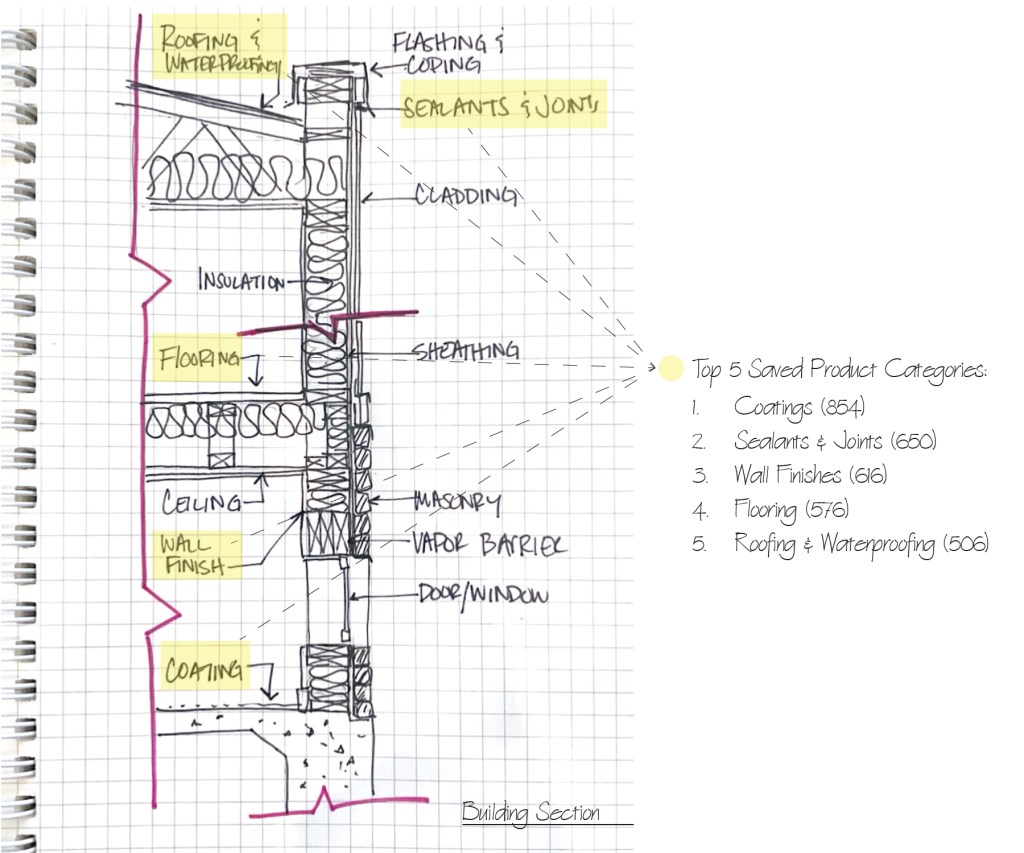 ROOFING &
WATERPROOFING
FLASHING &
COPING
SEALANTS & JOINTS
CLADDING
INSULATION
FLOORING
SHEATHING
CEILING
MASONRY
WALL
FINISH
VAPOR BARRIER
DOOR/WINDOW
COATING
Building Section
Top 5 Saved Product Categories:
1. Coatings (854)
2. Sealants & Joints (650)
3. Wall Finishes (616)
4. Flooring (576)
5. Roofing & Waterproofing (506)